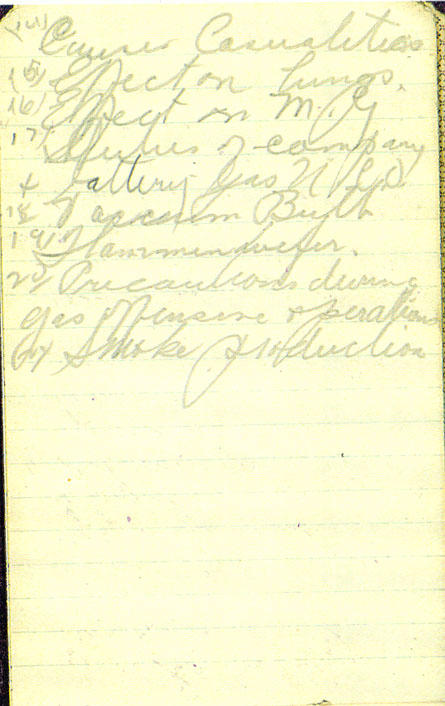 (14) Causes Casualities
(15) Effect on Lungs.
16) Effect on M.G
17) Duties of company
+ battery Gas N.C.O
18 Vacuum Bulb
19) Flammenwefer.
20) Precautions during
gas offensive operations
21 Smoke Production